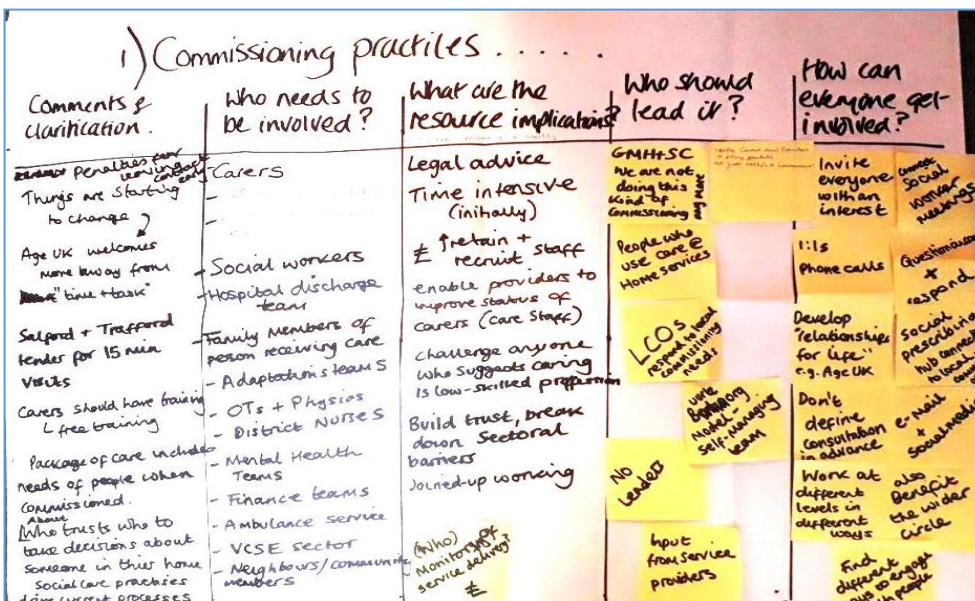 1) Commissioning practices . . . . . .
Comments &
clarification.
Penalties for
leaving contact
early
Things are starting
to change
Age UK welcomes
move away from
"time + task"
Salford + Trafford
tender for 15 min
visits
Carers should have training
free training
Package of care includes
needs of people when
commissioned.
About
Who trusts who to
take decisions about
someone in their home
Social care practises
drive current processes
Who needs to
be involved?
Carers
-
-
-
- Social workers
- Hospital discharge
team
- Family Members of
person receiving care
- Adaptations teams
- OTs + Physios
- District Nurses
- Mental Health
Teams
- Finance teams
- Ambulance service
- VCSE sector
- Neighbours/community
members
What are the
resource implications?
Legal advice
Time intensive
(initially)
£ ↑ retain +
recruit staff
enable providers to
improve status of
carers (care staff)
challenge anyone
who suggests caring
is low-skilled profession
Build trust, break
down sectoral
barriers
Joined-up working
(Who)
Monitoring of
service delivery?
£
Who should
lead it?
GMH+SC
We are not
doing this
kind of
commissioning
any more
People who
use care @
Home services
LCOs
respond to local
commissioning
needs
Model -
Self-Managing
team
No
Leaders
Input
from service
providers
How can
everyone get
involved?
Invite
everyone
with an
interest
social
worker
meetings
1:1s
phone calls
Questionnaire
+
respond
Develop
"relationships
for life"
e.g. Age UK
Social
prescribing
hub connect
to local
Don't
define
consultation
in advance
e-mail
+
social media
Work at
different
levels in
different
ways
also
Benefit
the wider
circle
Find
different
ways to engage
with people